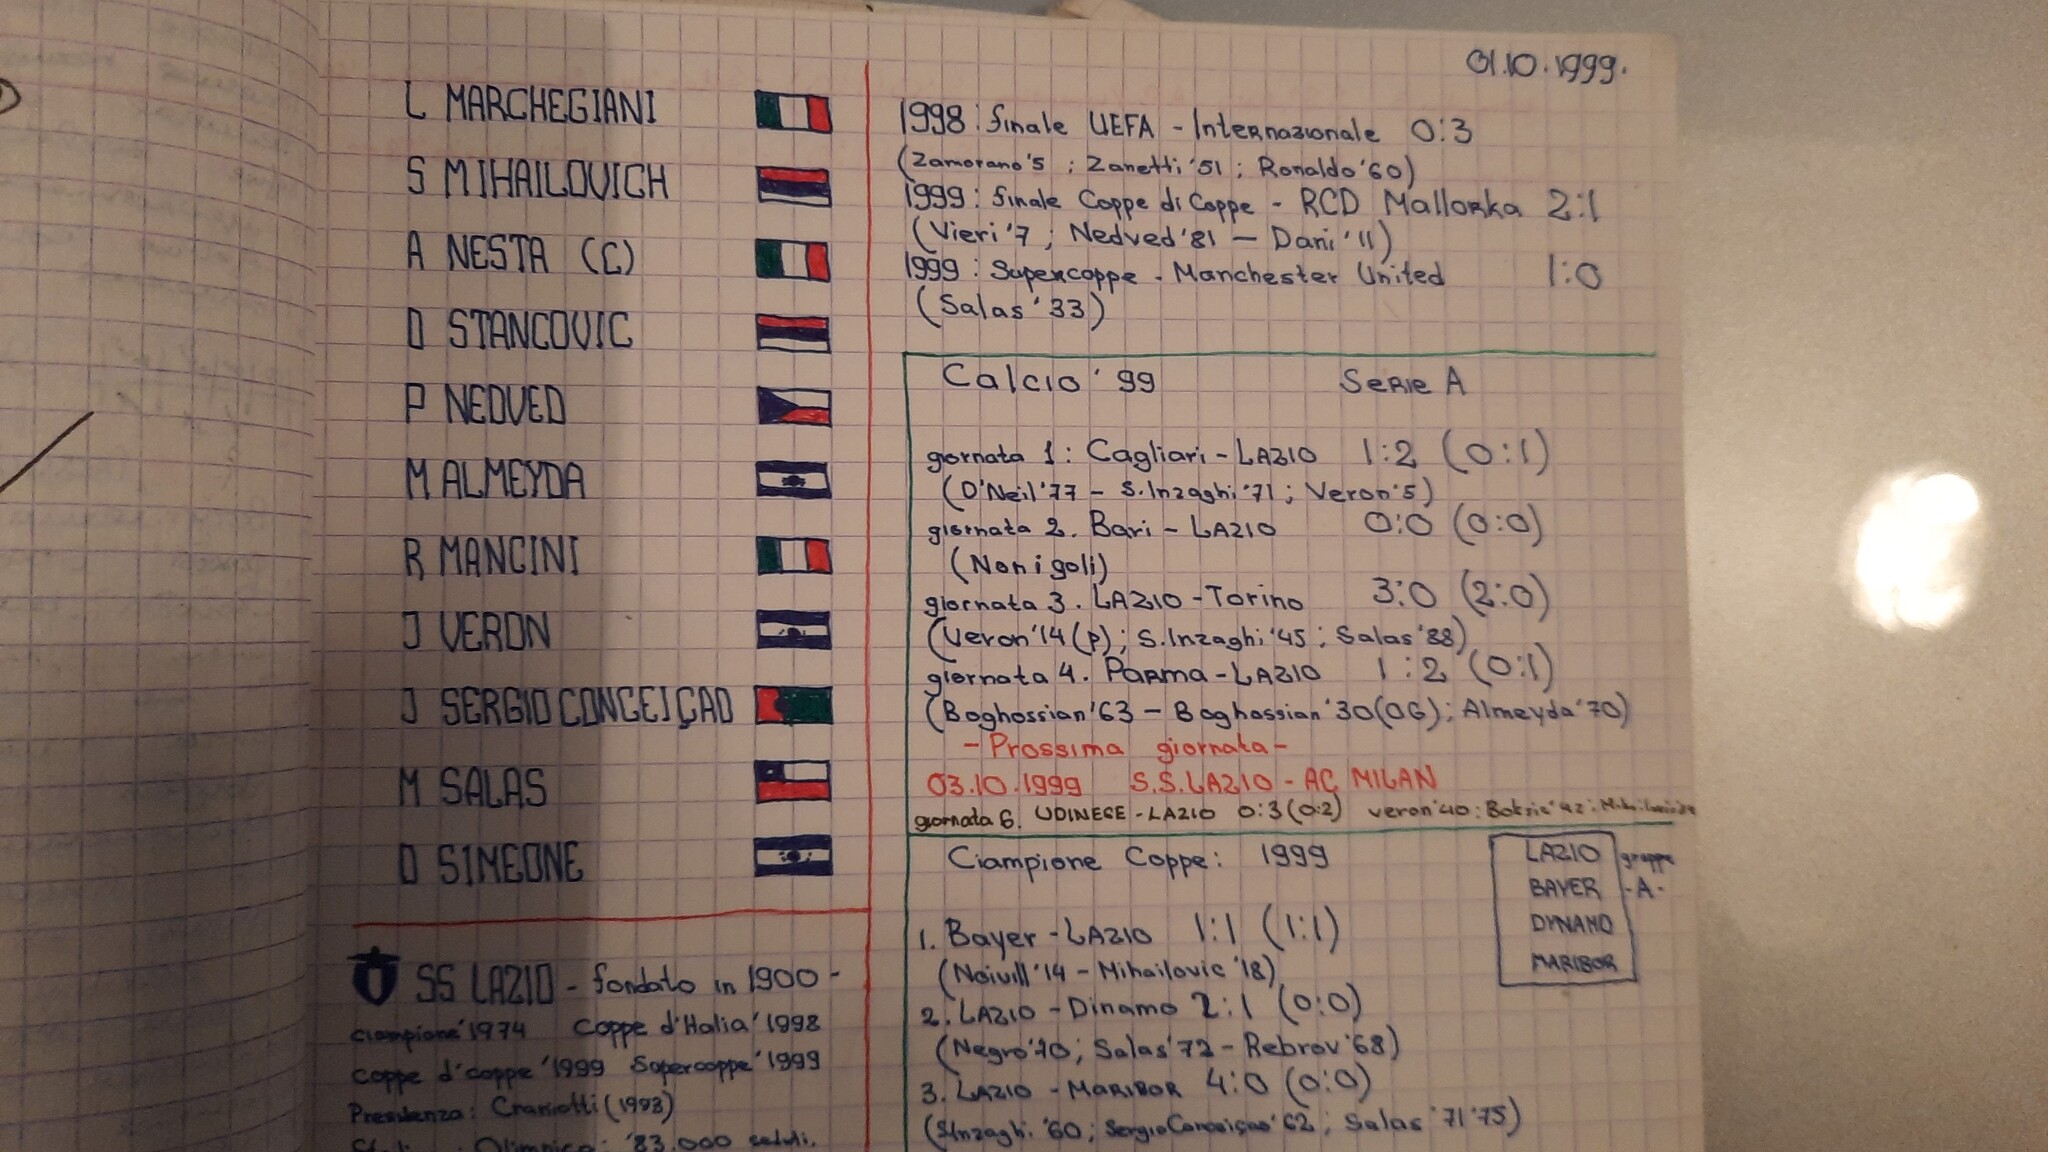 L MARCHEGIANI
S MIHAILOVICH
A NESTA (C)
D STANCOVIC
P NEDVED
M ALMEYDA
R MANCINI
J VERON
J SERGIO CONCEIÇAO
M SALAS
D SIMEONE
SS LAZIO - fondato in 1900 -
ciampione '1974 Coppe d'Halia '1998
coppe d'coppe '1999 Supercoppe '1999
Presidenza: (1993)
Olimpico: '83.000 seduli.
01.10.1999.
1998: finale UEFA - Internazionale 0:3
(Zamorano '5 ; Zanetti '51 ; Ronaldo '60)
1999: finale Coppe di Coppe - RCD Mallorka 2:1
(Vieri '7 ; Nedved '81 - Dani '11)
1999: Supercoppe - Manchester United 1:0
(Salas '33)
Calcio '99 Serie A
giornata 1: Cagliari - LAZIO 1:2 (0:1)
(O'Neil '77 - S.Inzaghi '71 ; Veron '5)
giornata 2. Bari - LAZIO 0:0 (0:0)
(Non i goli)
giornata 3. LAZIO - Torino 3:0 (2:0)
(Veron '14 (p) ; S.Inzaghi '45 ; Salas '88)
giornata 4. Parma - LAZIO 1:2 (0:1)
(Boghossian '63 - Boghossian '30 (OG) ; Almeyda '70)
- Prossima giornata -
03.10.1999 S.S.LAZIO - AC MILAN
giornata 6. UDINESE - LAZIO 0:3 (0:2) veron '40 ; Boksic '42 ;
Ciampione Coppe: 1999
LAZIO gruppe
BAYER - A -
DYNAMO
MARIBOR
1. Bayer - LAZIO 1:1 (1:1)
(Noivill '14 - Mihailovic '18)
2. LAZIO - Dinamo 2:1 (0:0)
(Negro ; Salas '72 - Rebrov '68)
3. LAZIO - MARIBOR 4:0 (0:0)
(SInzaghi '60 ; Sergio Conceiçao '62 ; Salas '71 '75)